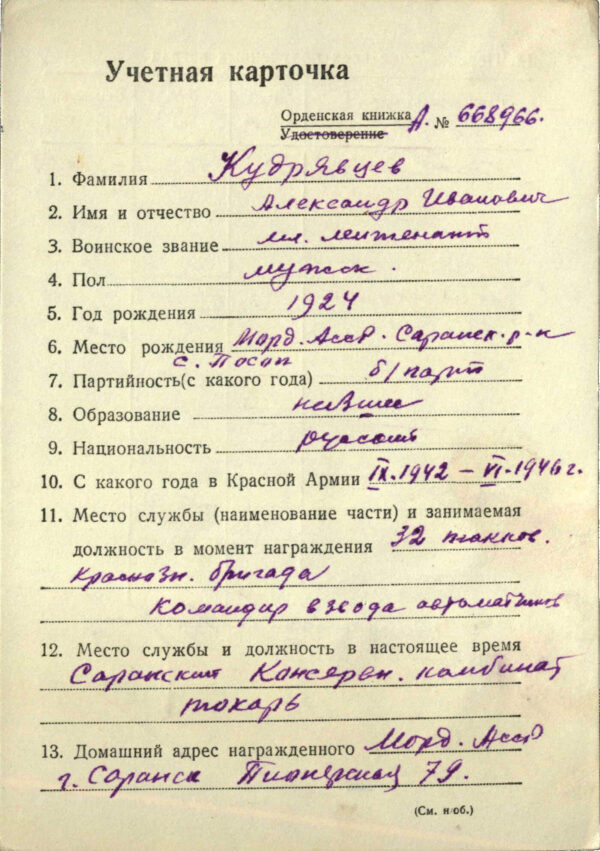 Учетная карточка
Орденская книжка А. № 668966.
Удостоверение
1. Фамилия Кудрявцев
2. Имя и отчество Александр Иванович
3. Воинское звание мл. лейтенант
4. Пол мужск.
5. Год рождения 1924
6. Место рождения Морд. Асср. Саранск. р-н
с. Посоп
7. Партийность(с какого года) б/парт
8. Образование
9. Национальность русский
10. С какого года в Красной Армии IX.1942 – VI.1946 г.
11. Место службы (наименование части) и занимаемая
должность в момент награждения 32 танков.
Краснозн. бригада
Командир взвода автоматчиков
12. Место службы и должность в настоящее время
Саранский Консервн. комбинат
токарь
13. Домашний адрес награжденного Морд. Асср
г. Саранск Пионерская 79.
(См. н/об.)